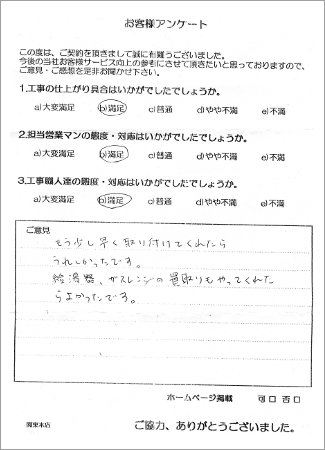 お客様アンケート
この度は、ご契約を頂きまして誠に有難うございました。
今後の当社お客様サービス向上の参考にさせて頂きたいと思っておりますので、
ご意見・ご感想を是非お聞かせ下さい。
1.工事の仕上がり具合はいかがでしたでしょうか。
a)大変満足 b)満足 c)普通 d)やや不満 e)不満
2.担当営業マンの態度・対応はいかがでしたでしょうか。
a)大変満足 b)満足 c)普通 d)やや不満 e)不満
3.工事職人達の態度・対応はいかがでしたでしょうか。
a)大変満足 b)満足 c)普通 d)やや不満 e)不満
ご意見
もう少し早く取り付けてくれたら
うれしかったです。
給湯器、ガスレンジの買取りもやってくれた
らよかったです。
ホームページ掲載 可□ 否□
関東本店
ご協力、ありがとうございました。